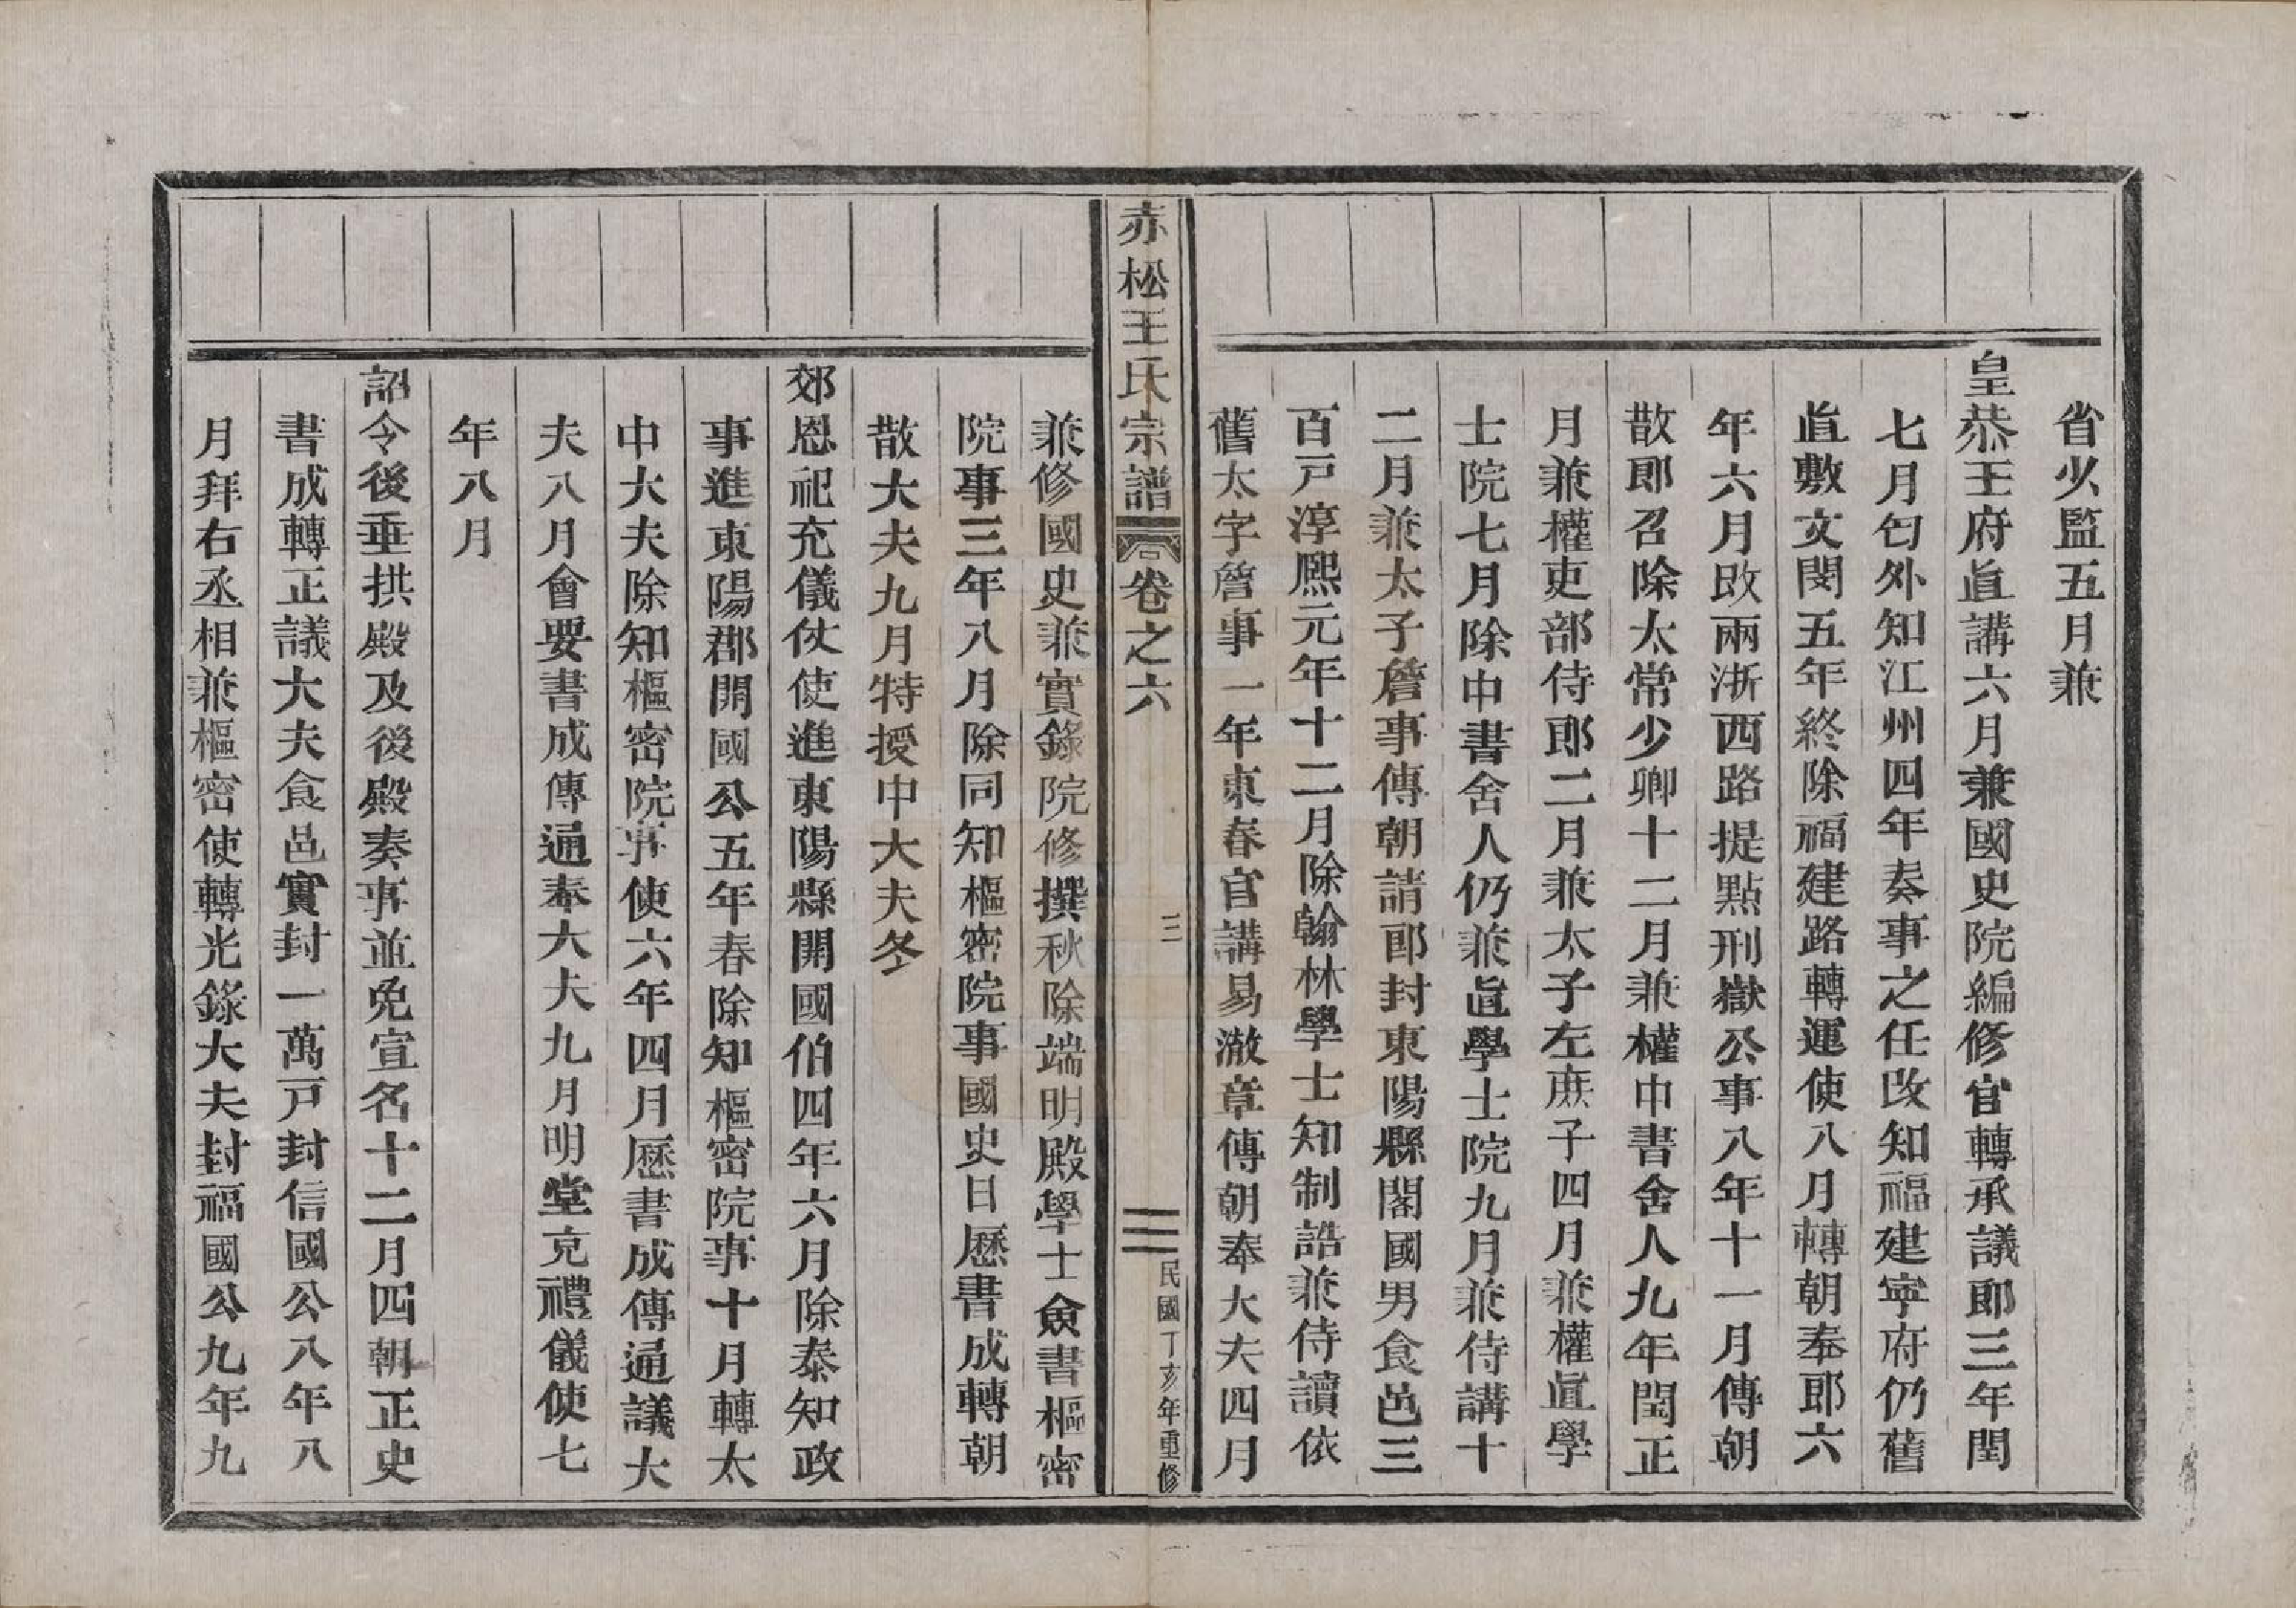 省少監五月兼
皇恭王府直講六月兼國史院編修官轉承議郎三年閏
七月匄外知江州四年奏事之任改知福建寜府仍舊
直敷文閔五年終除福建路轉運使八月轉朝奉郎六
年六月改兩浙西路提點刑嶽公事八年十一月傳朝
散郎召除太常少卿十二月兼權中書舍人九年閏正
月兼權吏部侍郎二月兼太子左庶子四月兼權直學
士院七月除中書舍人仍兼直學士院九月兼侍講十
二月兼太子詹事傳朝請郎封東陽縣閣國男食邑三
百戸淳熈元年十二月除翰林學士知制誥兼侍讀依
舊太字詹事一年東春官講易澈章傳朝奉大夫四月
赤松王氏宗譜 卷之六 三 民國丁亥年重修
兼修國史兼實錄院修撰秋除端明殿學士僉書樞密
院事三年八月除同知樞密院事國史日厯書成轉朝
散大夫九月特授中大夫冬
郊恩祀充儀仗使進東陽縣開國伯四年六月除泰知政
事進東陽郡開國公五年春除知樞密院事十月轉太
中大夫除知樞密院事使六年四月厯書成傳通議大
夫八月會要書成傳通奉大夫九月明堂克禮儀使七
年八月
詔令後垂拱殿及後殿奏事並免宣名十二月四朝正史
書成轉正議大夫食邑實封一萬戸封信國公八年八
月拜右丞相兼樞密使轉光錄大夫封福國公九年九